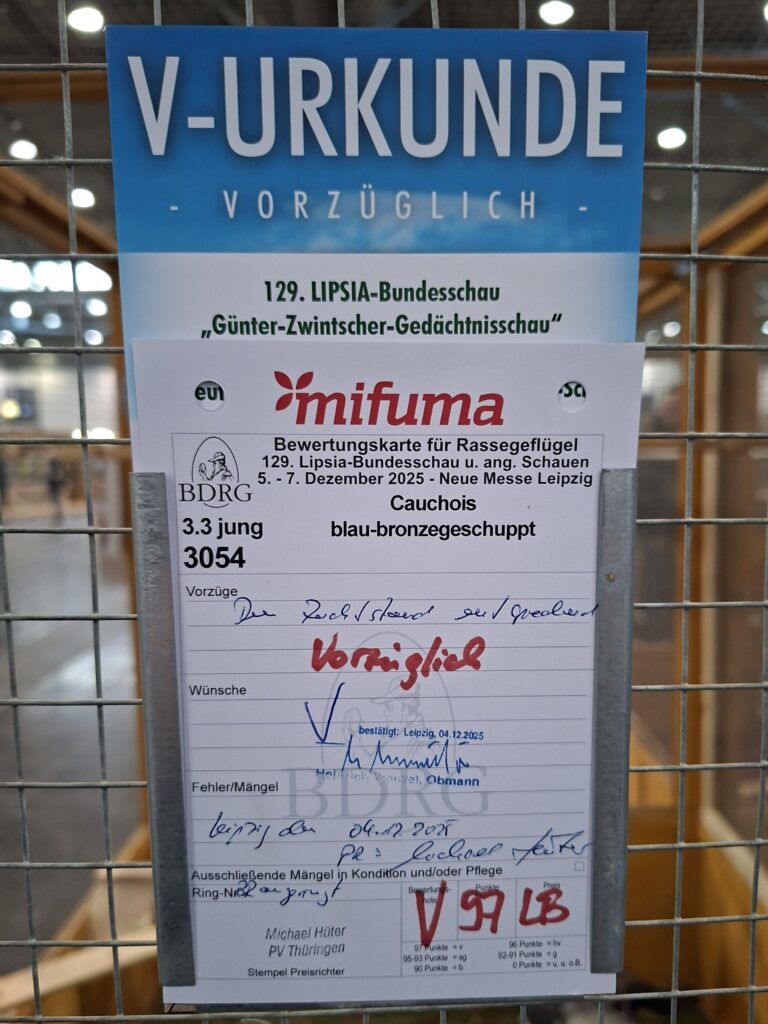 V-URKUNDE
- VORZÜGLICH -
129. LIPSIA-Bundesschau
„Günter-Zwintscher-Gedächtnisschau“
mifuma
Bewertungskarte für Rassegeflügel
129. Lipsia-Bundesschau u. ang. Schauen
5. - 7. Dezember 2025 - Neue Messe Leipzig
BDRG
Cauchois
3.3 jung blau-bronzegeschuppt
3054
Vorzüge
Dem Zuchtstand entsprechend
Vorzüglich
Wünsche
V
bestätigt: Leipzig, 04.12.2025
Obmann
BDRG
Fehler/Mängel
Leipzig den 04.12.2025
PR: Michael Hüter
Ausschließende Mängel in Kondition und/oder Pflege
Ring-Nr.
Bewertungs-note Punkte Preis
V 97 LB
Michael Hüter
PV Thüringen
97 Punkte = v 96 Punkte = hv
95-93 Punkte = sg 92-91 Punkte = g
90 Punkte = b 0 Punkte = u. u. o.B.
Stempel Preisrichter